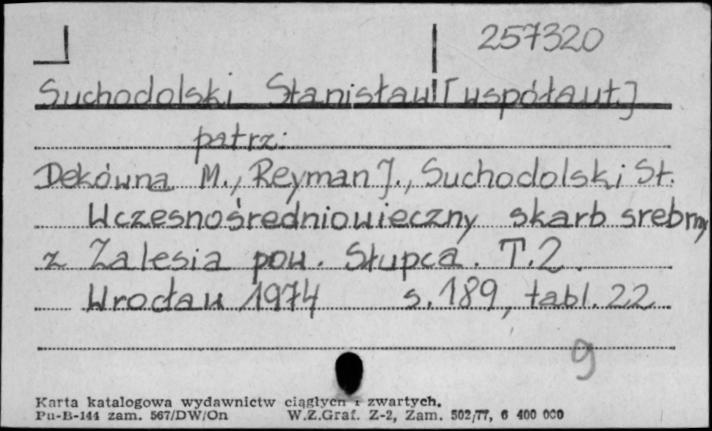 257320
Suchodolski Stanisław [współaut.]
patrz:
Dekówna M., Reyman J., Suchodolski St.
Wczesnośredniowieczny skarb srebrny
z Zalesia pow. Słupca. T.2.
Wrocław 1974 s. 189, tabl. 22
9
Karta katalogowa wydawnictw ciągłych i zwartych.
Pu-B-144 zam. 567/DW/On W.Z.Graf. Z-2, Zam. 502/77, 6 400 000